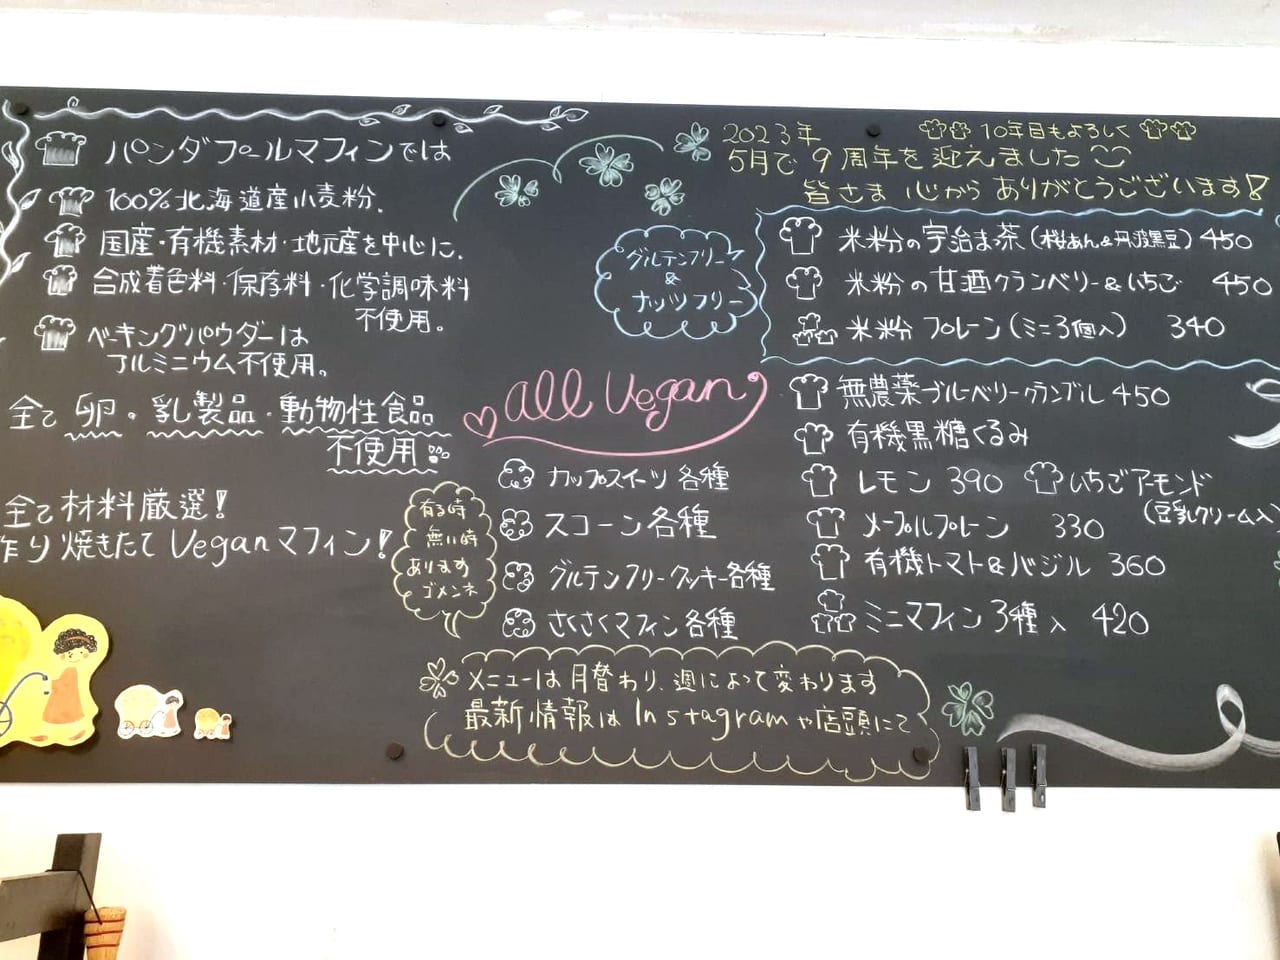 パンダプールマフィンでは
100%北海道産小麦粉.
国産・有機素材・地元産を中心に.
合成着色料・保存料・化学調味料
不使用。
ベーキングパウダーは
アルミニウム不使用。
全て卵・乳製品・動物性食品
不使用
全て材料厳選!
作り焼きたてVeganマフィン!
2023年 10年目もよろしく
5月で9周年を迎えました
皆さま 心から ありがとうございます!
グルテンフリー
&
ナッツフリー
米粉の宇治まっ茶(桜あん&丹波黒豆) 450
米粉の甘酒クランベリー&いちご 450
米粉 プレーン(ミニ3個入) 340
all Vegan
無農薬ブルーベリークランブル 450
有機黒糖くるみ
レモン 390 いちごアーモンド
(豆乳クリーム入)
メープルプレーン 330
有機トマト&バジル 360
ミニマフィン3種入 420
カップスイーツ 各種
スコーン各種
グルテンフリークッキー各種
さくさくマフィン各種
有る時
無い時
あります
ゴメンネ
メニューは月替わり、週によって変わります
最新情報はInstagramや店頭にて